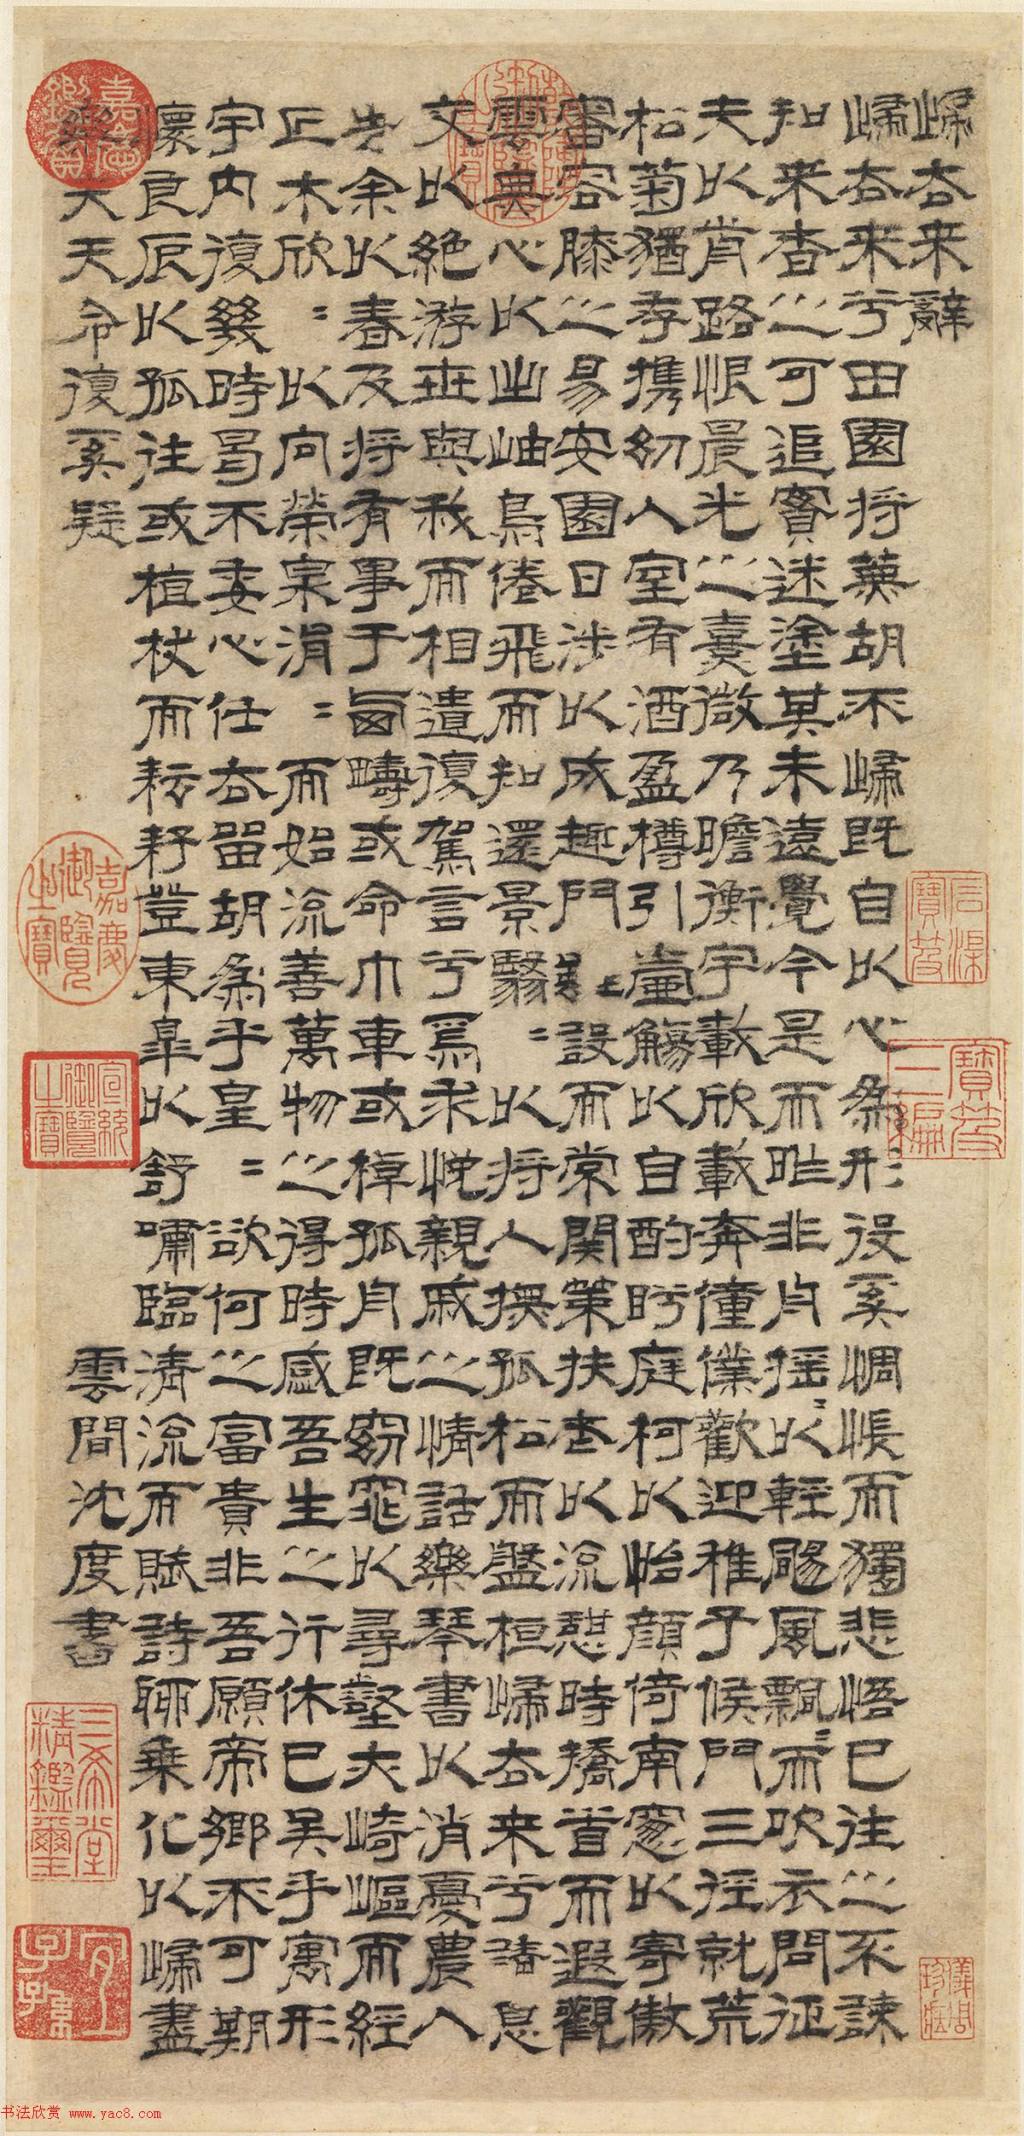 歸去来辭
歸去来兮田園将蕪胡不歸既自以心為形役奚惆悵而獨悲悟已往之不諫
知来者之可追實迷塗其未遠覺今是而昨非舟摇〻以輕颺風飄〻而吹衣問征
夫以前路恨晨光之熹微乃瞻衡宇載欣載奔僮僕歡迎稚子候門三径就荒
松菊猶存携幼入室有酒盈樽引壺觴以自酌眄庭柯以怡顔倚南窓以寄傲
審容膝之易安園日涉以成趣門雖設而常関策扶老以流憩時矯首而遐觀
雲無心以出岫鳥倦飛而知還景翳〻以将入撫孤松而盤桓歸去来兮請息
交以絶游世與我而相遺復駕言兮焉求悦親戚之情話樂琴書以消憂農人
告余以春及将有事于西疇或命巾車或棹孤舟既窈窕以尋壑亦崎嶇而經
丘木欣〻以向榮泉涓〻而始流善萬物之得時感吾生之行休已矣乎寓形
宇内復幾時曷不委心任去留胡為乎皇〻欲何之富貴非吾願帝鄉不可期
懷良辰以孤往或植杖而耘耔登東皐以舒嘯臨清流而賦詩聊乗化以歸盡
樂夫天命復奚疑
雲間沈度書
嘉慶鑑賞
嘉慶御覽之寶
宣統御覽之寶
三希堂精鑑璽
宜子孫
石渠寶笈
寶笈三編
儀周珍藏
书法欣赏 www.yac8.com